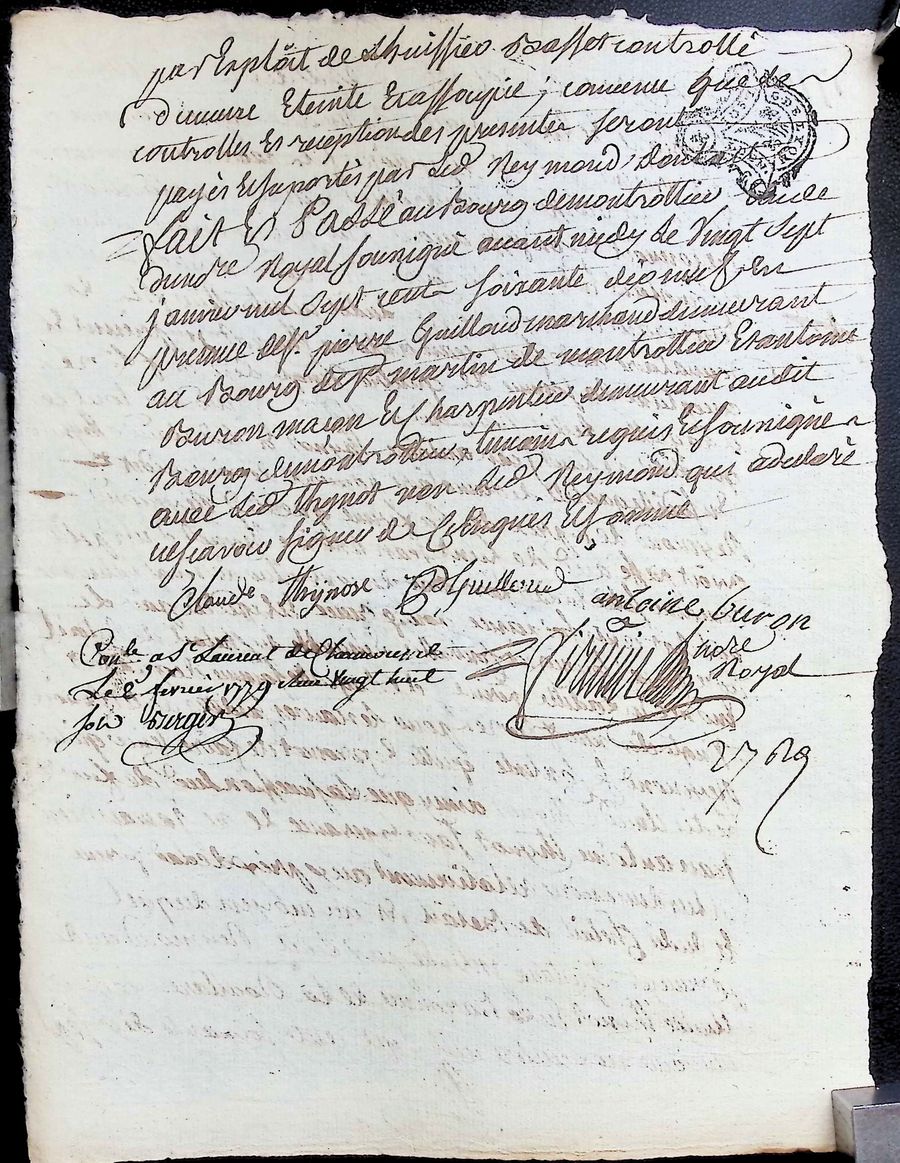 par Exploit de Lhuissier Basset controllé
dumeure Eteinte Et assoupie; convenu que de
controlles Et reception des presentes seront
payés Et suportés par led Reymond,
fait Et Passé au Bourg de montrottier Etude
du ndre Royal sousigné avant midy le Vingt Sept
janvier mil sept cent soixante dixneuf En
presence de sr. pierre Guillaud marchand demeurant
au Bourg de st martin de montrottier Et antoine
Buron maçon Et Charpentier demeurant audit
Bourg de montrottier, temoins requis Et sousignés
avec led Thynot non led Reymond qui a declaré
ne scavoir signer de Ce Enquis Et sommé
Claude Thynost Guillerud antoine buron
ndre
Royal
Conlé a St Laurent de Chamousset
Le fevrier 1779 Reçu vingt huit
sols
27